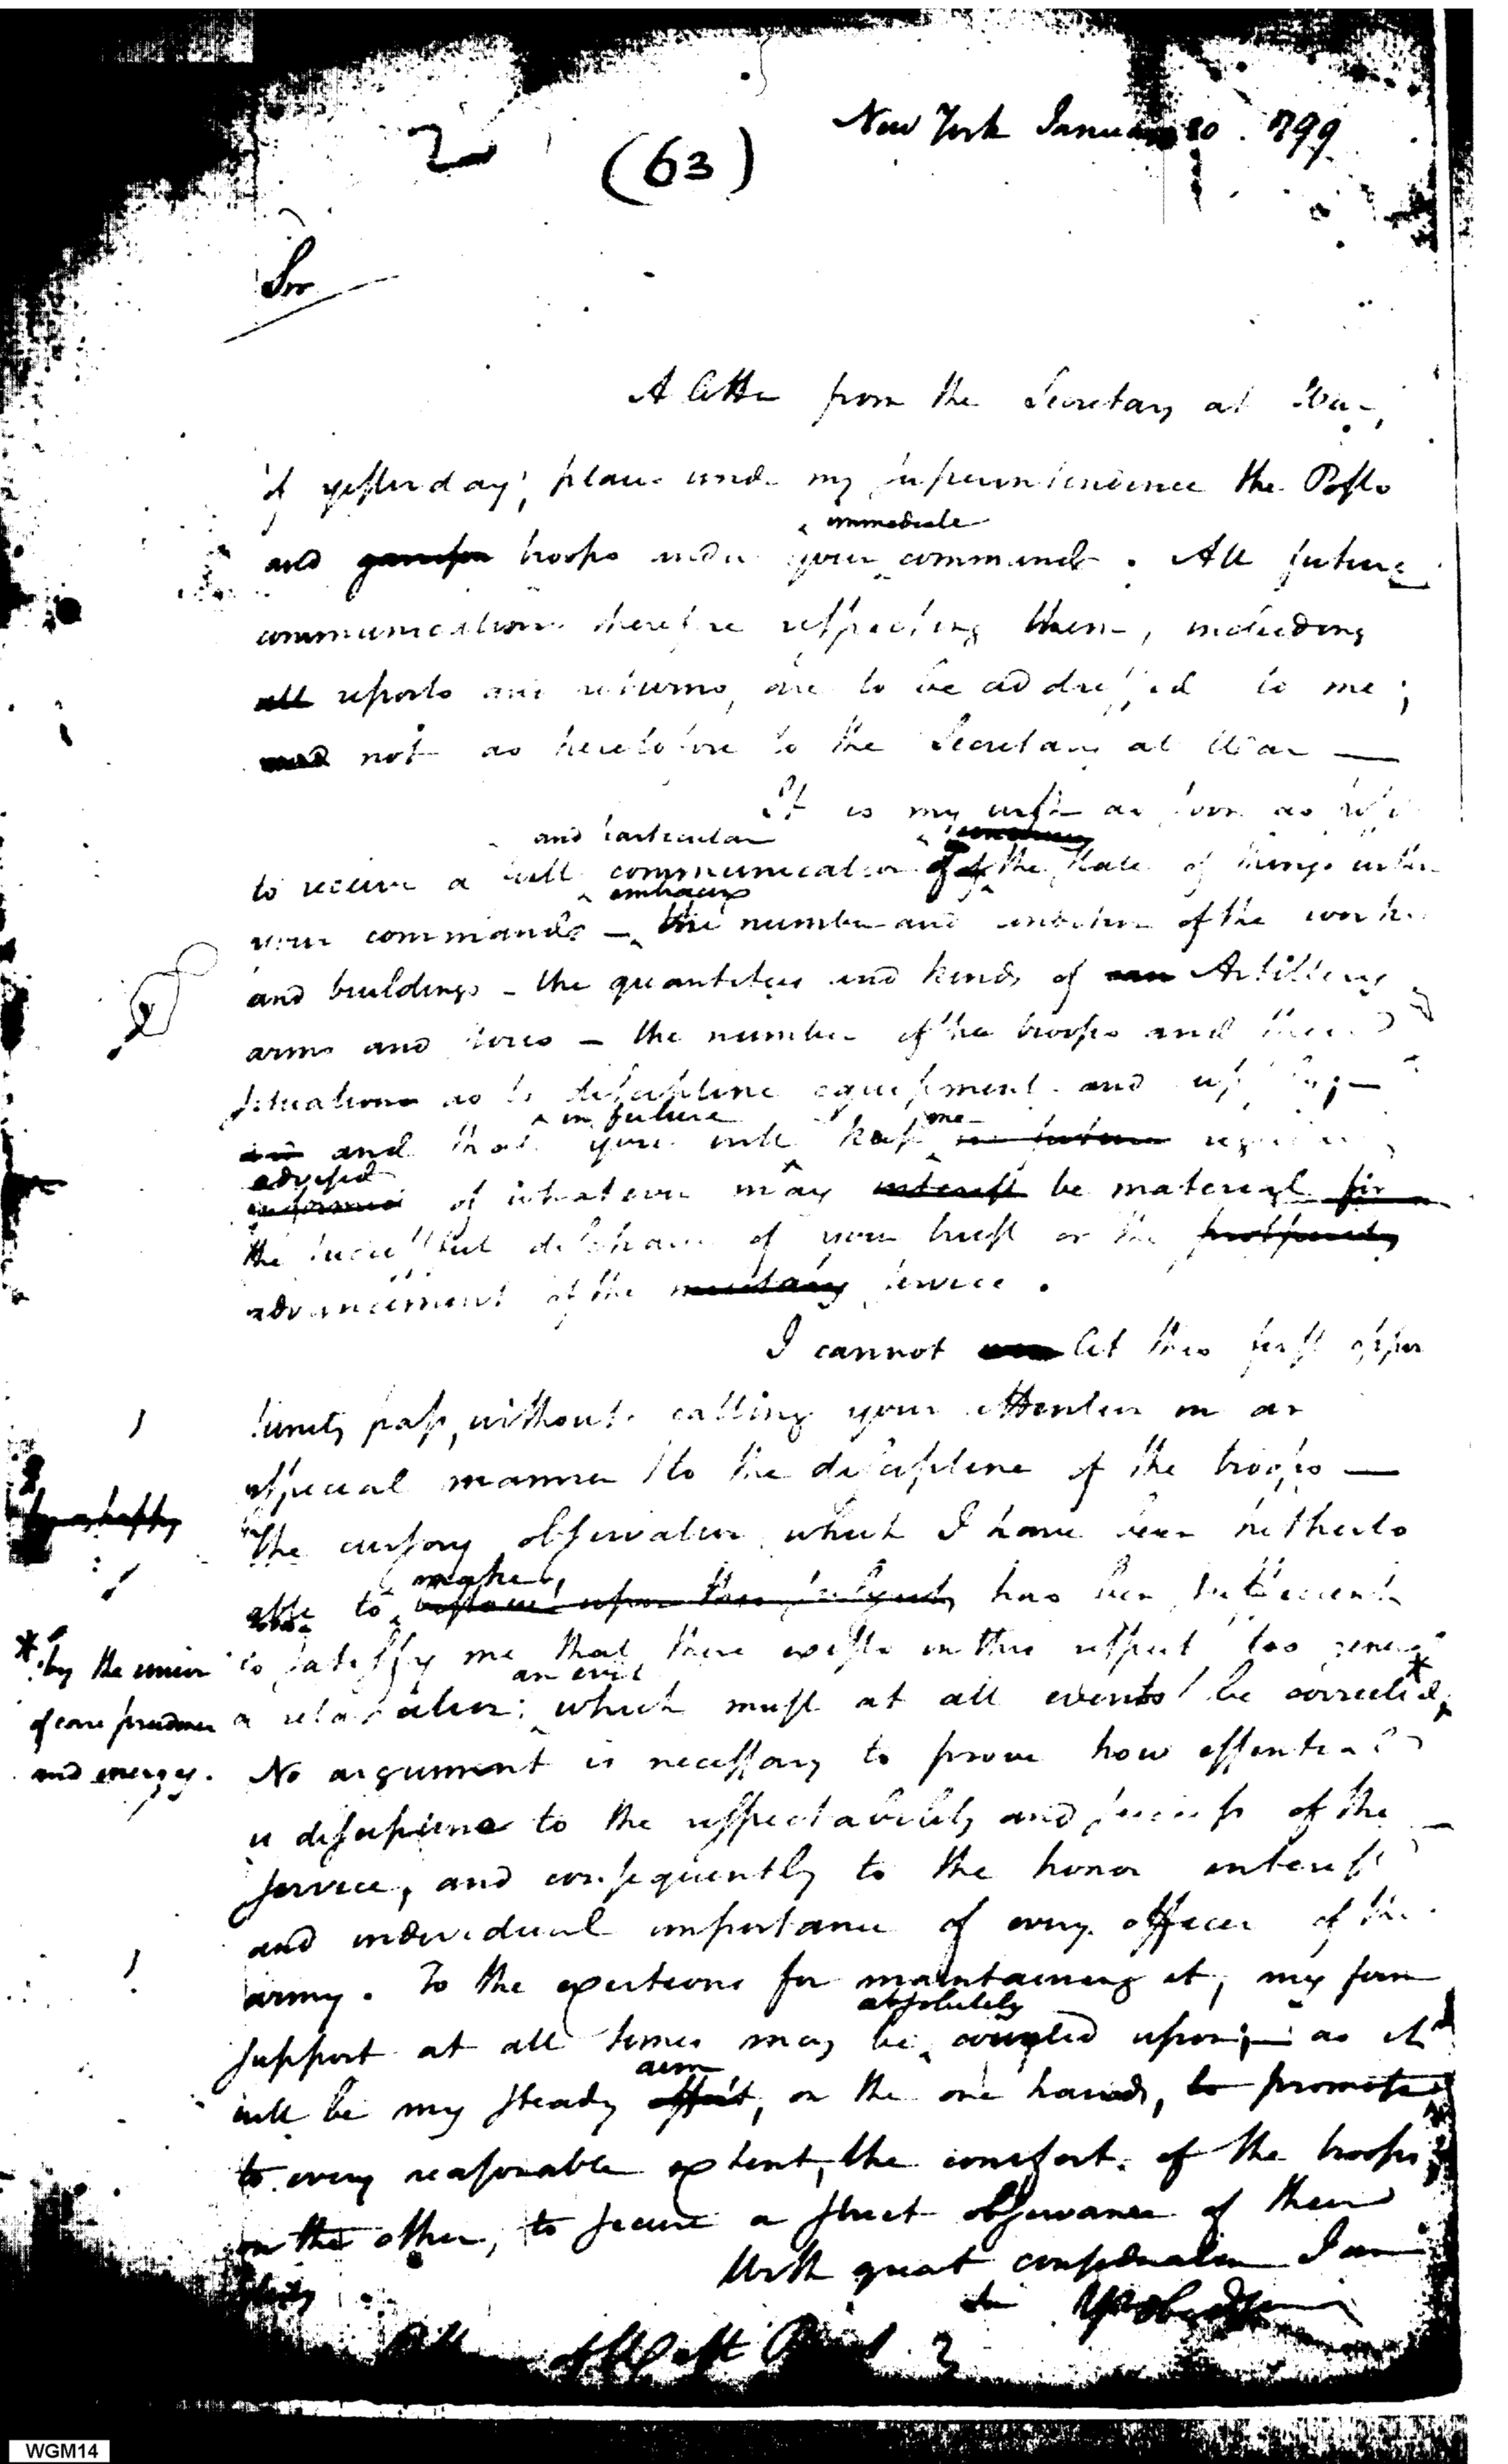 2
(63)
New York January 30. 1799
Sir
A letter from the Secretary at War,
of yesterday, places under my superintendence the Posts
immediate
and garrison troops under your command. All future
communications therefore respecting them, including
all reports and returns, are to be addressed to me;
and not as heretofore to the Secretary at War —
It is my wish as soon as
and particular
to receive a full communication of the State of things under
embracing
your command — the number and condition of the works
and buildings – the quantities and kinds of Artillery
arms and stores – the number of the troops and their
situation as to discipline equipment and
in future me
and that you will keep in future
advised
informed of whatever may interest be material for
the successful discharge of your trust or the prosperity
advancement of the military service.
I cannot let this first oppor
tunity pass, without calling your attention in an
especial manner to the discipline of the troops —
The cursory observation which I have been hitherto
make,
able to bestow upon this subject, has been sufficient
to satisfy me that there exists in this respect too general
an evil
a relaxation; which must at all events be corrected *
* by the union
of care prudence
and energy.
No argument is necessary to prove how essential
is discipline to the respectability and success of the
service, and consequently to the honor interest
and individual importance of every officer of the
army. To the exertions for maintaining it, my firm
absolutely
support at all times may be counted upon; as it
aim
will be my steady effort, on the one hand, to promote
to every reasonable extent, the comfort of the troops
on the other, to secure a strict observance of their
duty
With great consideration I am
Sir
WGM14